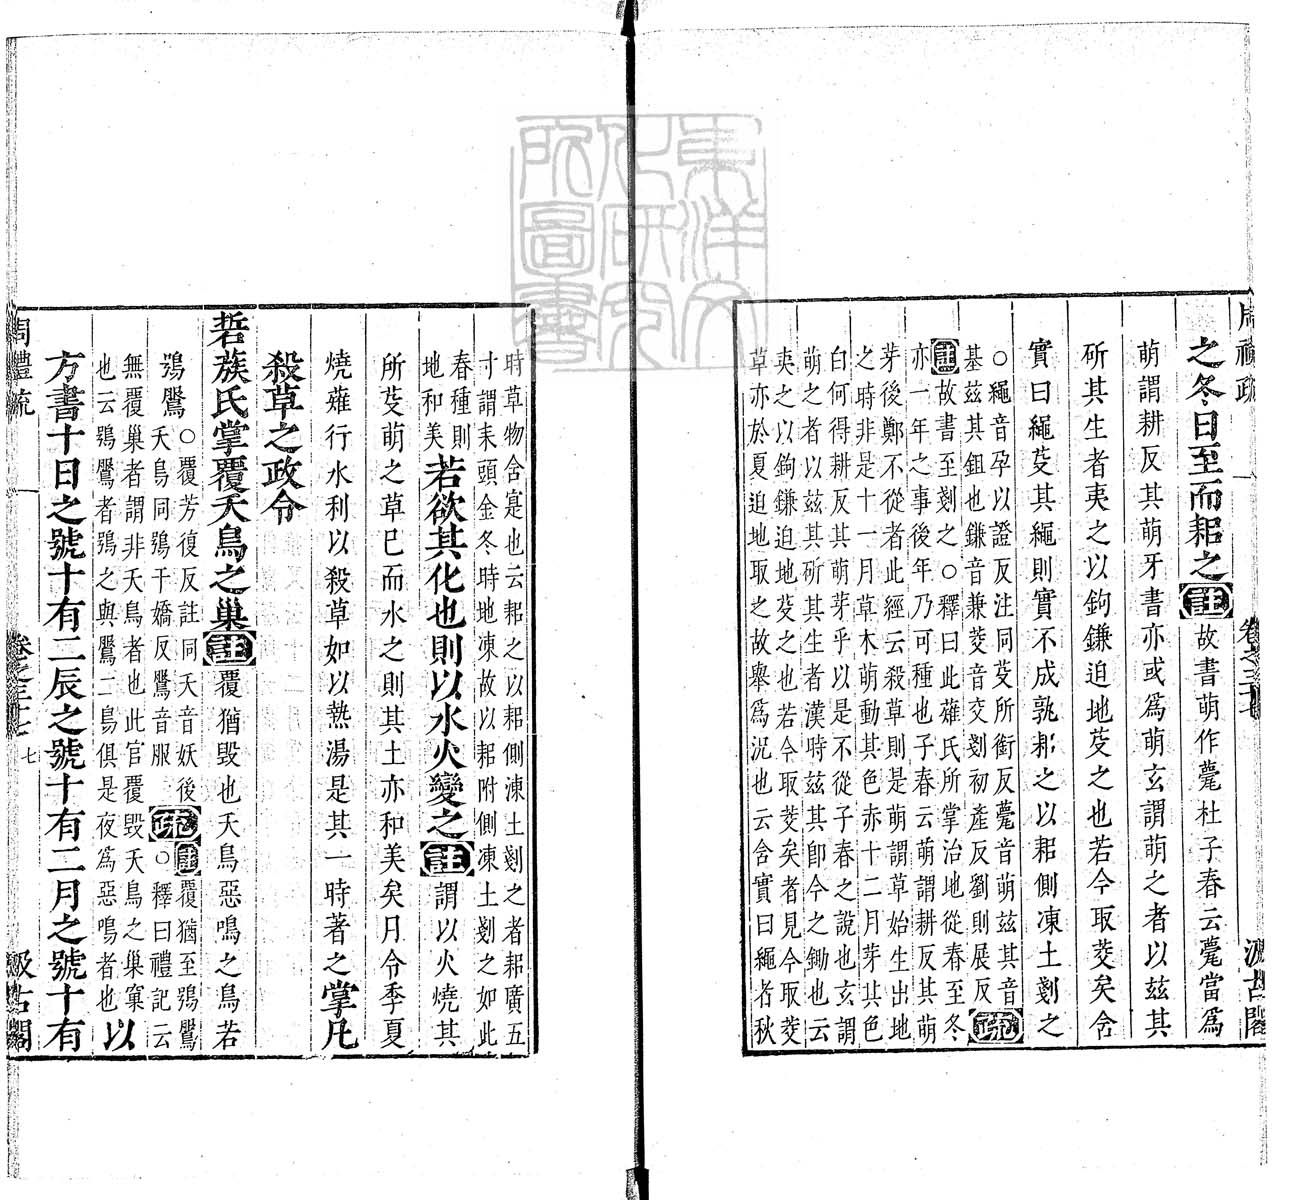 周禮疏
卷之三十七
汲古閣
之冬日至而耜之註故書萌作甍杜子春云甍當爲
萌謂耕反其萌牙書亦或爲萌玄謂萌之者以玆其
斫其生者夷之以鉤鎌迫地芟之也若今取茭矣含
實曰繩芟其繩則實不成孰耜之以耜側凍土剗之
○繩音孕以證反注同芟所銜反甍音萌玆其音
基玆其鉏也鎌音兼茭音交剗初產反劉則展反疏
註故書至剗之○釋曰此薙氏所掌治地從春至冬
亦一年之事後年乃可種也子春云萌謂耕反其萌
芽後鄭不從者此經云殺草則是萌謂草始生出地
之時非是十一月草木萌動其色赤十二月芽其色
白何得耕反其萌芽乎以是不從子春之說也玄謂
萌之者以玆其斫其生者漢時玆其卽今之鋤也云
夷之以鉤鎌迫地芟之也若今取茭矣者見今取茭
草亦於夏迫地取之故舉爲況也云含實曰繩者秋
時草物含寔也云耜之以耜側凍土剗之者耜廣五
寸謂耒頭金冬時地凍故以耜附側凍土剗之如此
春種則
地和美若欲其化也則以水火變之註謂以火燒其
所芟萌之草已而水之則其土亦和美矣月令季夏
燒薙行水利以殺草如以熱湯是其一時著之掌凡
殺草之政令
硩蔟氏掌覆夭鳥之巢註覆猶毀也夭鳥惡鳴之鳥若
鴞鵩○覆芳復反註同夭音妖後
夭鳥同鴞于嬌反鵩音服疏註覆猶至鴞鵩
○釋曰禮記云
無覆巢者謂非夭鳥者也此官覆毀夭鳥之巢窠
也云鴞鵩者鴞之與鵩二鳥俱是夜爲惡鳴者也以
方書十日之號十有二辰之號十有二月之號十有
周禮疏
卷之三十七
七
汲古閣
東洋文
化研究
所圖書